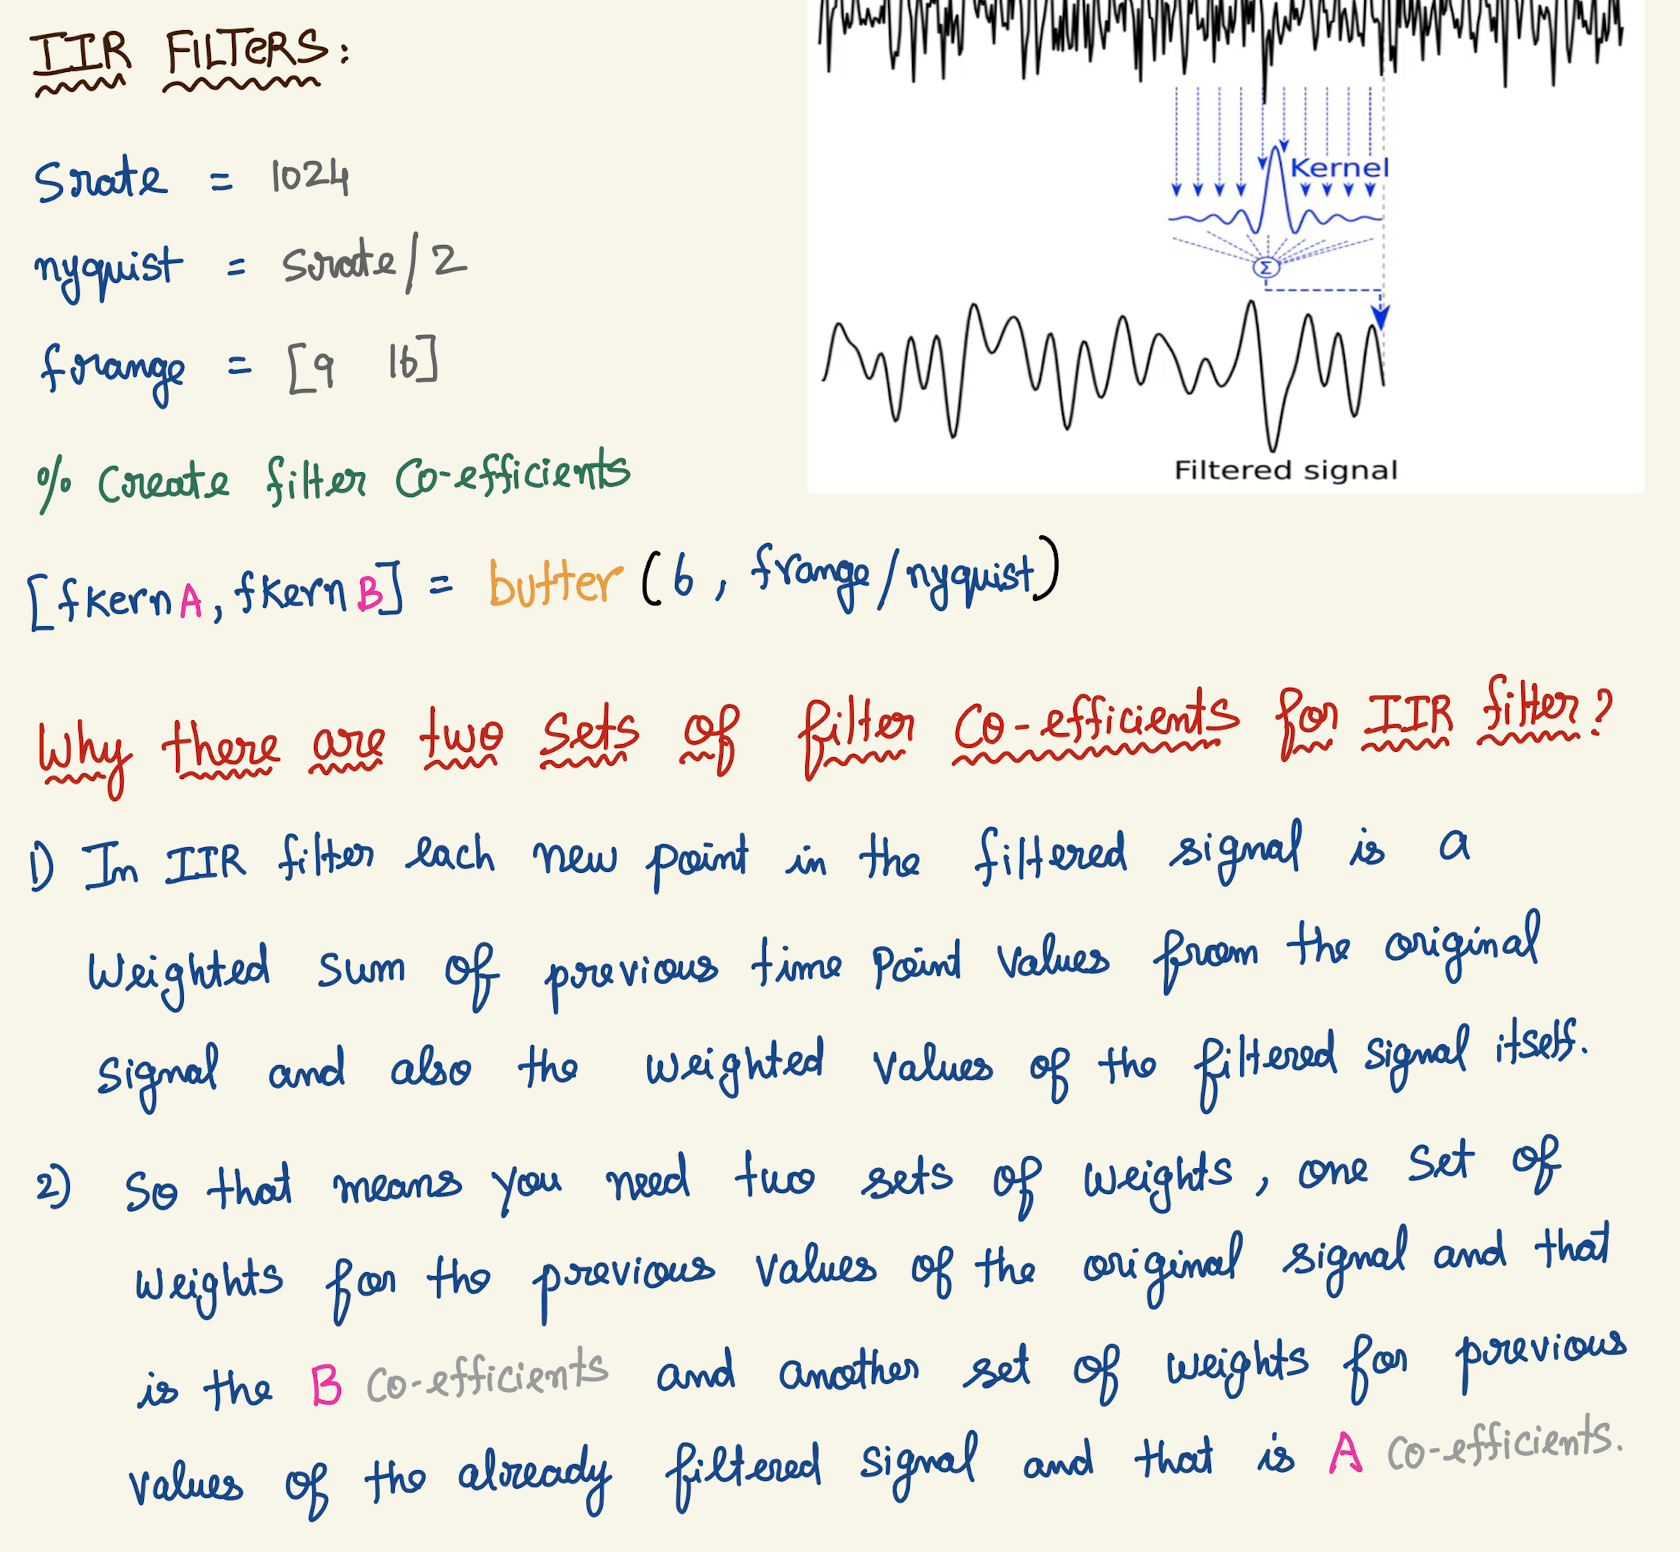 IIR FILTERS:
Srate = 1024
nyquist = srate/2
frange = [9 16]
% Create filter Co-efficients
[fkernA, fkernB] = butter (6, frange/nyquist)
Kernel
Σ
Filtered signal
Why there are two sets of filter Co-efficients for IIR filter?
1) In IIR filter each new point in the filtered signal is a
Weighted sum of previous time Point Values from the original
Signal and also the weighted values of the filtered signal itself.
2) So that means you need two sets of weights, one set of
weights for the previous values of the original signal and that
is the B Co-efficients and another set of weights for previous
values of the already filtered signal and that is A Co-efficients.